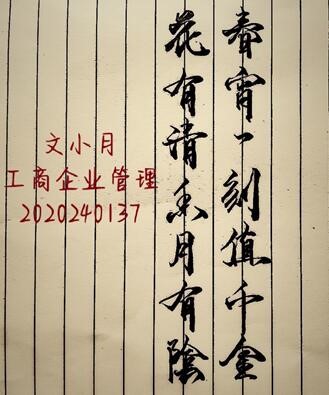 春宵一刻值千金
花有清香月有陰
文小月
工商企业管理
2020240137